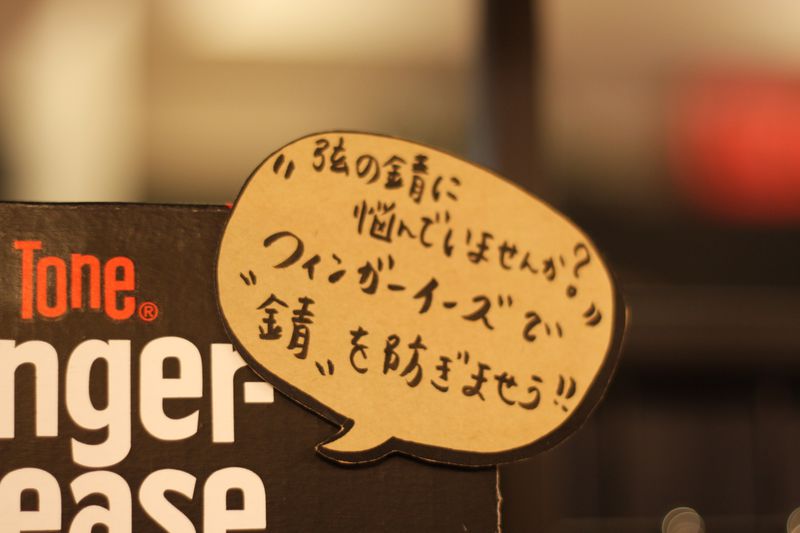 Tone®
nger-
ease
"弦の錆に
悩んでいませんか?"
フィンガーイーズで
"錆"を防ぎませう!!